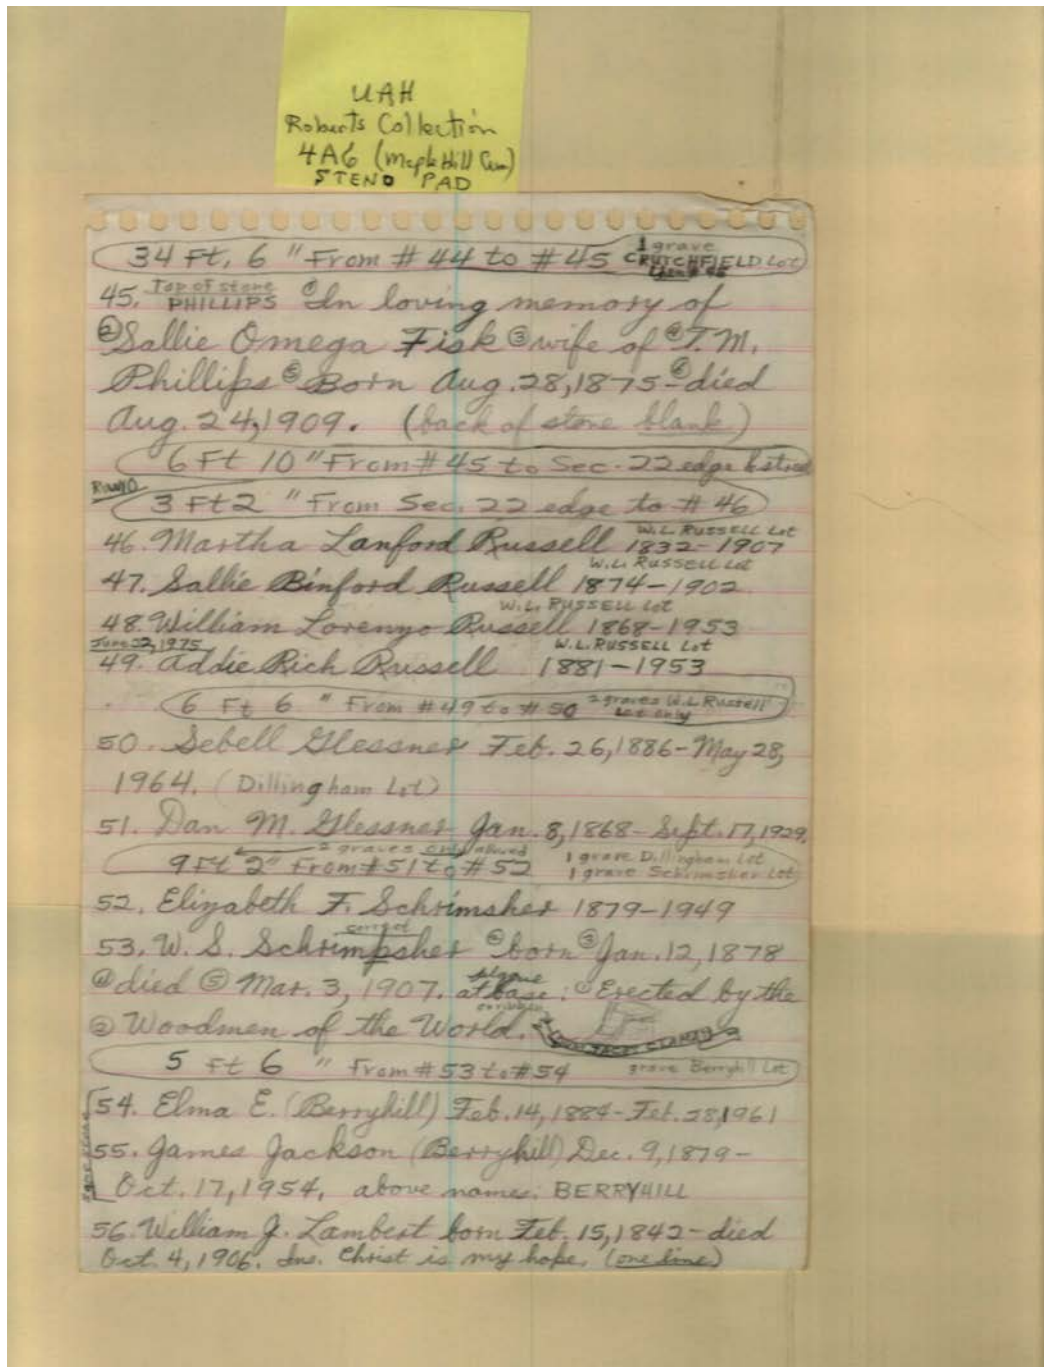 UAH
Roberts Collection
4A6 (Maple Hill Cem)
STENO PAD
34 Ft, 6 " From # 44 to # 45 1 grave CRUTCHFIELD Lot
45. Top of stone PHILLIPS ① In loving memory of
② Sallie Omega Fisk ③ wife of ④ T. M.
Phillips ⑤ Born Aug. 28, 1875 - ⑥ died
Aug. 24, 1909. (back of stone blank)
6 Ft 10 " From # 45 to Sec. 22 edge
Row 10
3 Ft 2 " From Sec. 22 edge to # 46
W. L. RUSSELL Lot
46. Martha Lanford Russell 1832-1907
W. L. RUSSELL Lot
47. Sallie Binford Russell 1874-1902
W. L. RUSSELL Lot
48. William Lorenzo Russell 1868-1953
June 22, 1975 W. L. RUSSELL Lot
49. Addie Rich Russell 1881-1953
6 Ft 6 " From #49 to #50 2 graves W.L Russell Lot only
50. Sebell Glessner Feb. 26, 1886 - May 28,
1964. (Dillingham Lot)
51. Dan M. Glessner Jan. 8, 1868 - Sept. 17, 1929.
2 graves only allowed
9 Ft 2" From #51 to #52 1 grave Dillingham Lot
1 grave Schrimsher Lot
52. Elizabeth F. Schrimsher 1879-1949
correct
53. W. S. Schrimpsher ② born ③ Jan. 12, 1878
④ died ⑤ Mar. 3, 1907. at base: ① Erected by the
② Woodmen of the World.
5 Ft 6 " From #53 to #54 grave Berryhill Lot
54. Elma E. (Berryhill) Feb. 14, 1884 - Feb. 28, 1961
55. James Jackson (Berryhill) Dec. 9, 1879 -
Oct. 17, 1954, above names: BERRYHILL
56. William J. Lambert born Feb. 15, 1842 - died
Oct. 4, 1906. Ins. Christ is my hope. (one line)